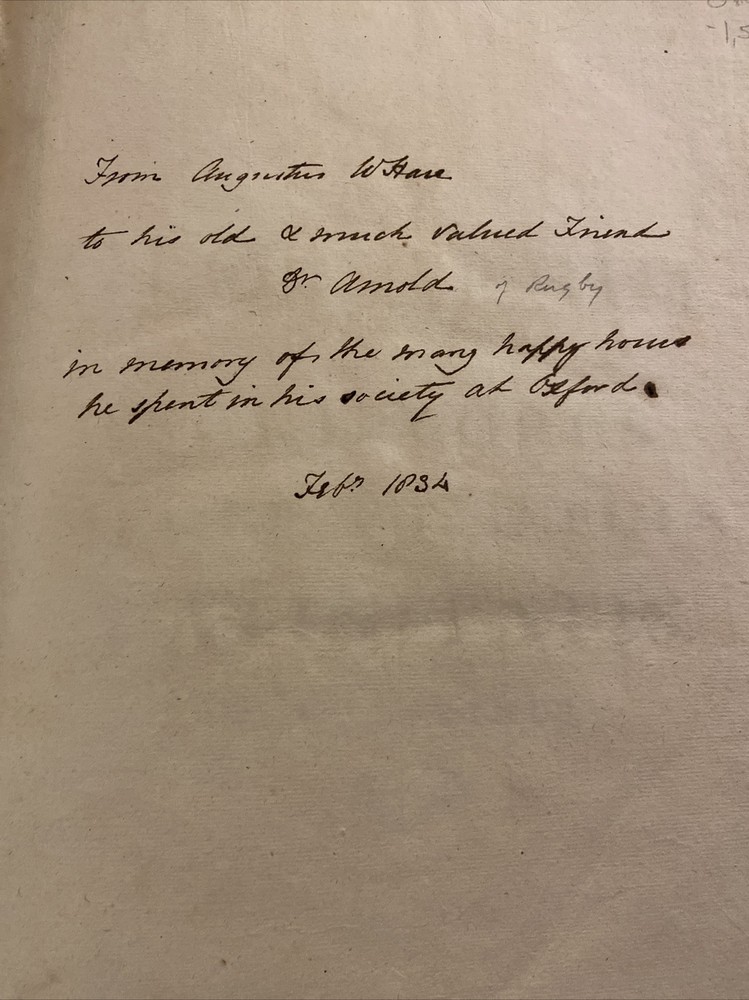 -1,5
From Augustus W Hare
to his old & much valued Friend
Dr Arnold of Rugby
in memory of the many happy hours
he spent in his society at Oxford.
Feby 1834